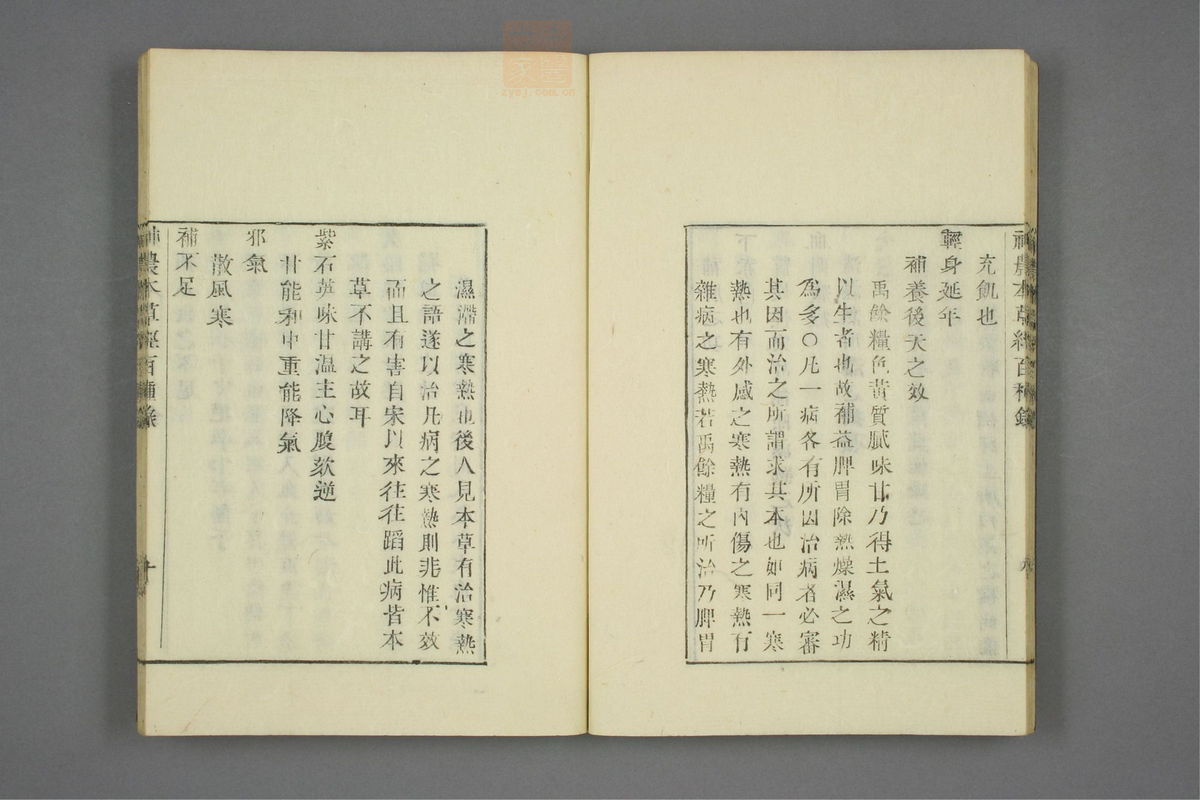 神農本草經百種錄
充飢也
輕身延年
補養後天之效
禹餘糧色黃質膩味甘乃得土氣之精
以生者也故補益脾胃除熱燥濕之功
爲多○凡一病各有所因治病者必審
其因而治之所謂求其本也如同一寒
熱也有外感之寒熱有內傷之寒熱有
雜病之寒熱若禹餘糧之所治乃脾胃
濕滯之寒熱也後人見本草有治寒熱
之語遂以治凡病之寒熱則非惟不效
而且有害自宋以來往往蹈此病皆本
草不講之故耳
紫石英味甘溫主心腹欬逆
甘能和中重能降氣
邪氣
散風寒
補不足
神農本草經百種錄
十
zyej.com.cn